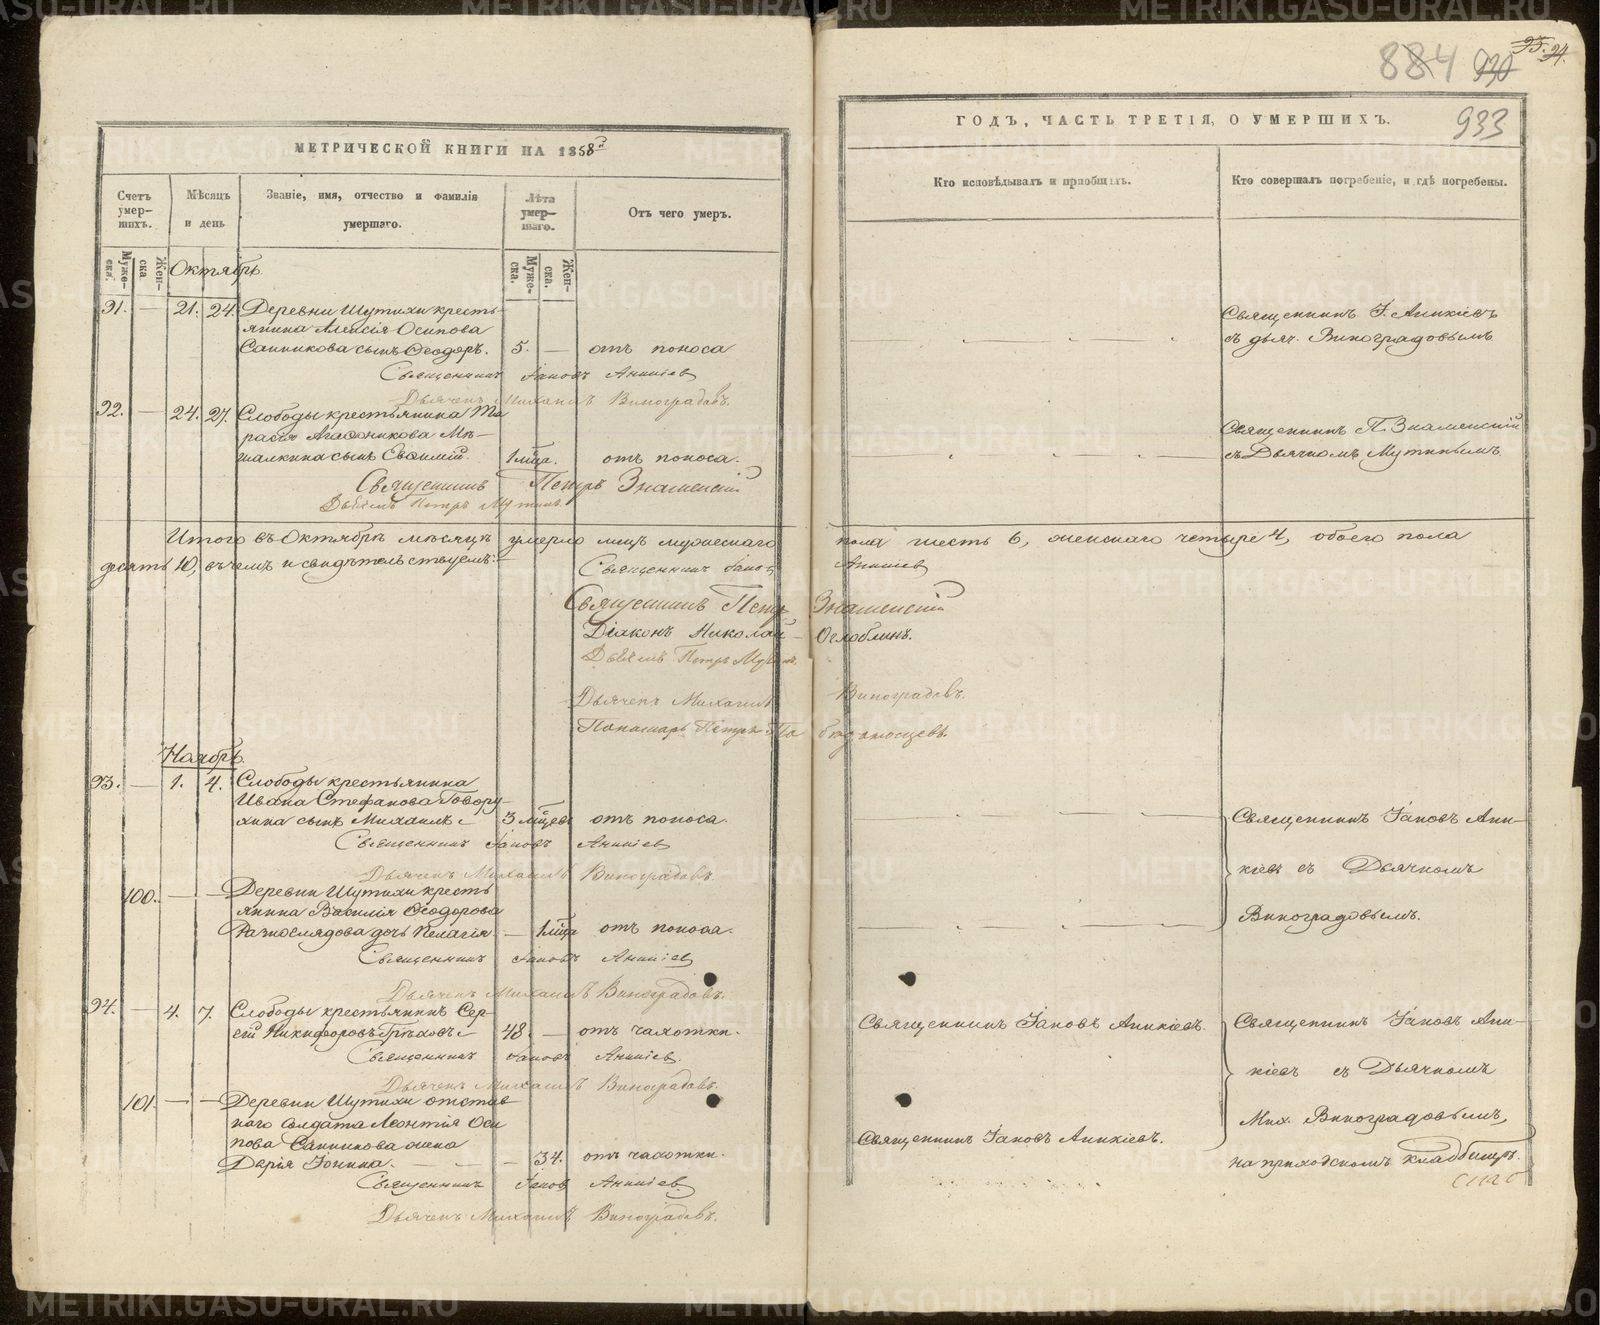 884 930 95. 94.
933
МЕТРИЧЕСКОЙ КНИГИ НА 1858й
ГОДЪ, ЧАСТЬ ТРЕТІЯ, О УМЕРШИХЪ.
Счетъ умер-шихъ.
Мѣсяцъ и день
Званіе, имя, отчество и фамилія умершаго.
Лѣта умер-шаго.
Отъ чего умеръ.
Кто исповѣдывалъ и пріобщалъ.
Кто совершалъ погребеніе, и гдѣ погребены.
Муже-ска.
Жен-ска
Муже-ска.
Жен-ска.
Октябрь.
91. — 21. 24. Деревни Шутихи кресть-
янина Алексія Осипова
Санникова сынъ Ѳеодоръ. 5. — отъ поноса
Священникъ Іаковъ Аникіев
Дьячекъ Михаилъ Виноградовъ.
Священникъ І. Аникіевъ
съ дьяч. Виноградовымъ
92. — 24. 27. Слободы крестьянина Та
расія Агафоникова Мѣ-
шалкина сынъ Евѳимій. 1 мца. отъ поноса.
Священникъ Петръ Знаменскій
Дьячекъ Петръ Мутинъ.
Священникъ П. Знаменскій
съ Дьячкомъ Мутинымъ.
Итого въ Октябрѣ мѣсяцѣ умерло лицъ мужескаго пола шесть 6, женскаго четыре 4, обоего пола
десять 10, въ чемъ и свидѣтельствуемъ:
Священникъ Іаковъ Аникіев
Священникъ Петръ Знаменскій
Діаконъ Николай Ослоблинъ.
Дьячекъ Петръ Мутинъ.
Дьячекъ Михаилъ Виноградовъ.
Пономарь Петръ Победоносцевъ.
Ноябрь.
93. — 1. 4. Слободы крестьянина
Ивана Стефанова Говору-
хина сынъ Михаилъ 3 мцевъ отъ поноса.
Священникъ Іаковъ Аникіев
Дьячекъ Михаилъ Виноградовъ.
Священникъ Іаковъ Ани-
кіевъ съ Дьячкомъ
Виноградовымъ.
100. — — Деревни Шутихи кресть
янина Василія Ѳеодорова
Разнослядова дочь Пелагія. — 1 мца отъ поноса.
Священникъ Іаковъ Аникіев
Дьячекъ Михаилъ Виноградовъ.
94. — 4. 7. Слободы крестьянинъ Сер-
гій Никифоровъ Грѣховъ 48. — отъ чахотки.
Священникъ Іаковъ Аникіев.
Дьячекъ Михаилъ Виноградовъ.
Священникъ Іаковъ Аникіевъ.
Священникъ Іаковъ Ани-
кіевъ съ Дьячкомъ
Мих. Виноградовымъ,
на приходскомъ кладбищѣ.
101. — — Деревни Шутихи отстав
наго солдата Леонтія Оси
пова Санникова жена
Дарія Іонина. — — — 34. отъ чахотки.
Священникъ Іаковъ Аникіев.
Дьячекъ Михаилъ Виноградовъ.
Священникъ Іаковъ Аникіевъ.
METRIKI.GASO-URAL.RU